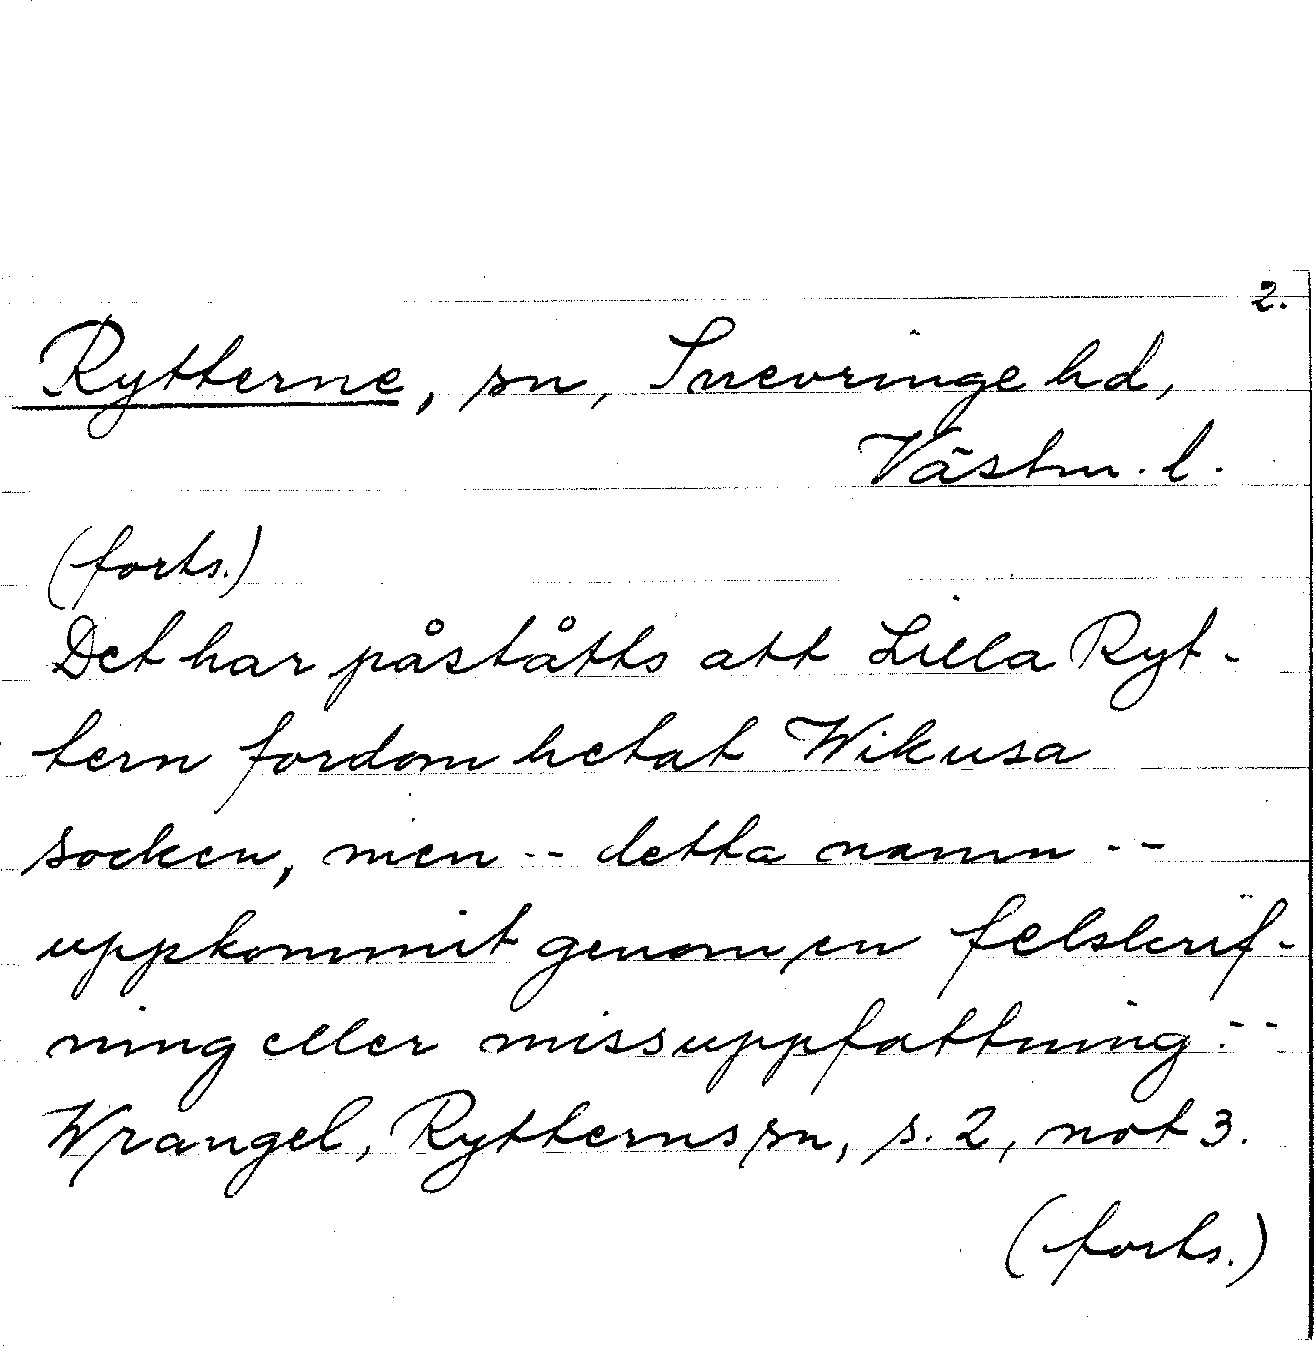 2.
Rytterne, sn, Snevringe hd,
Västm. l.
(forts.)
Det har påståtts att Lilla Ryt-
tern fordom hetat Wikusa
socken, men -- detta namn --
uppkommit genom en felskrif-
ning eller missuppfattning. --
Wrangel, Rytterns sn, s. 2, not 3.
(forts.)